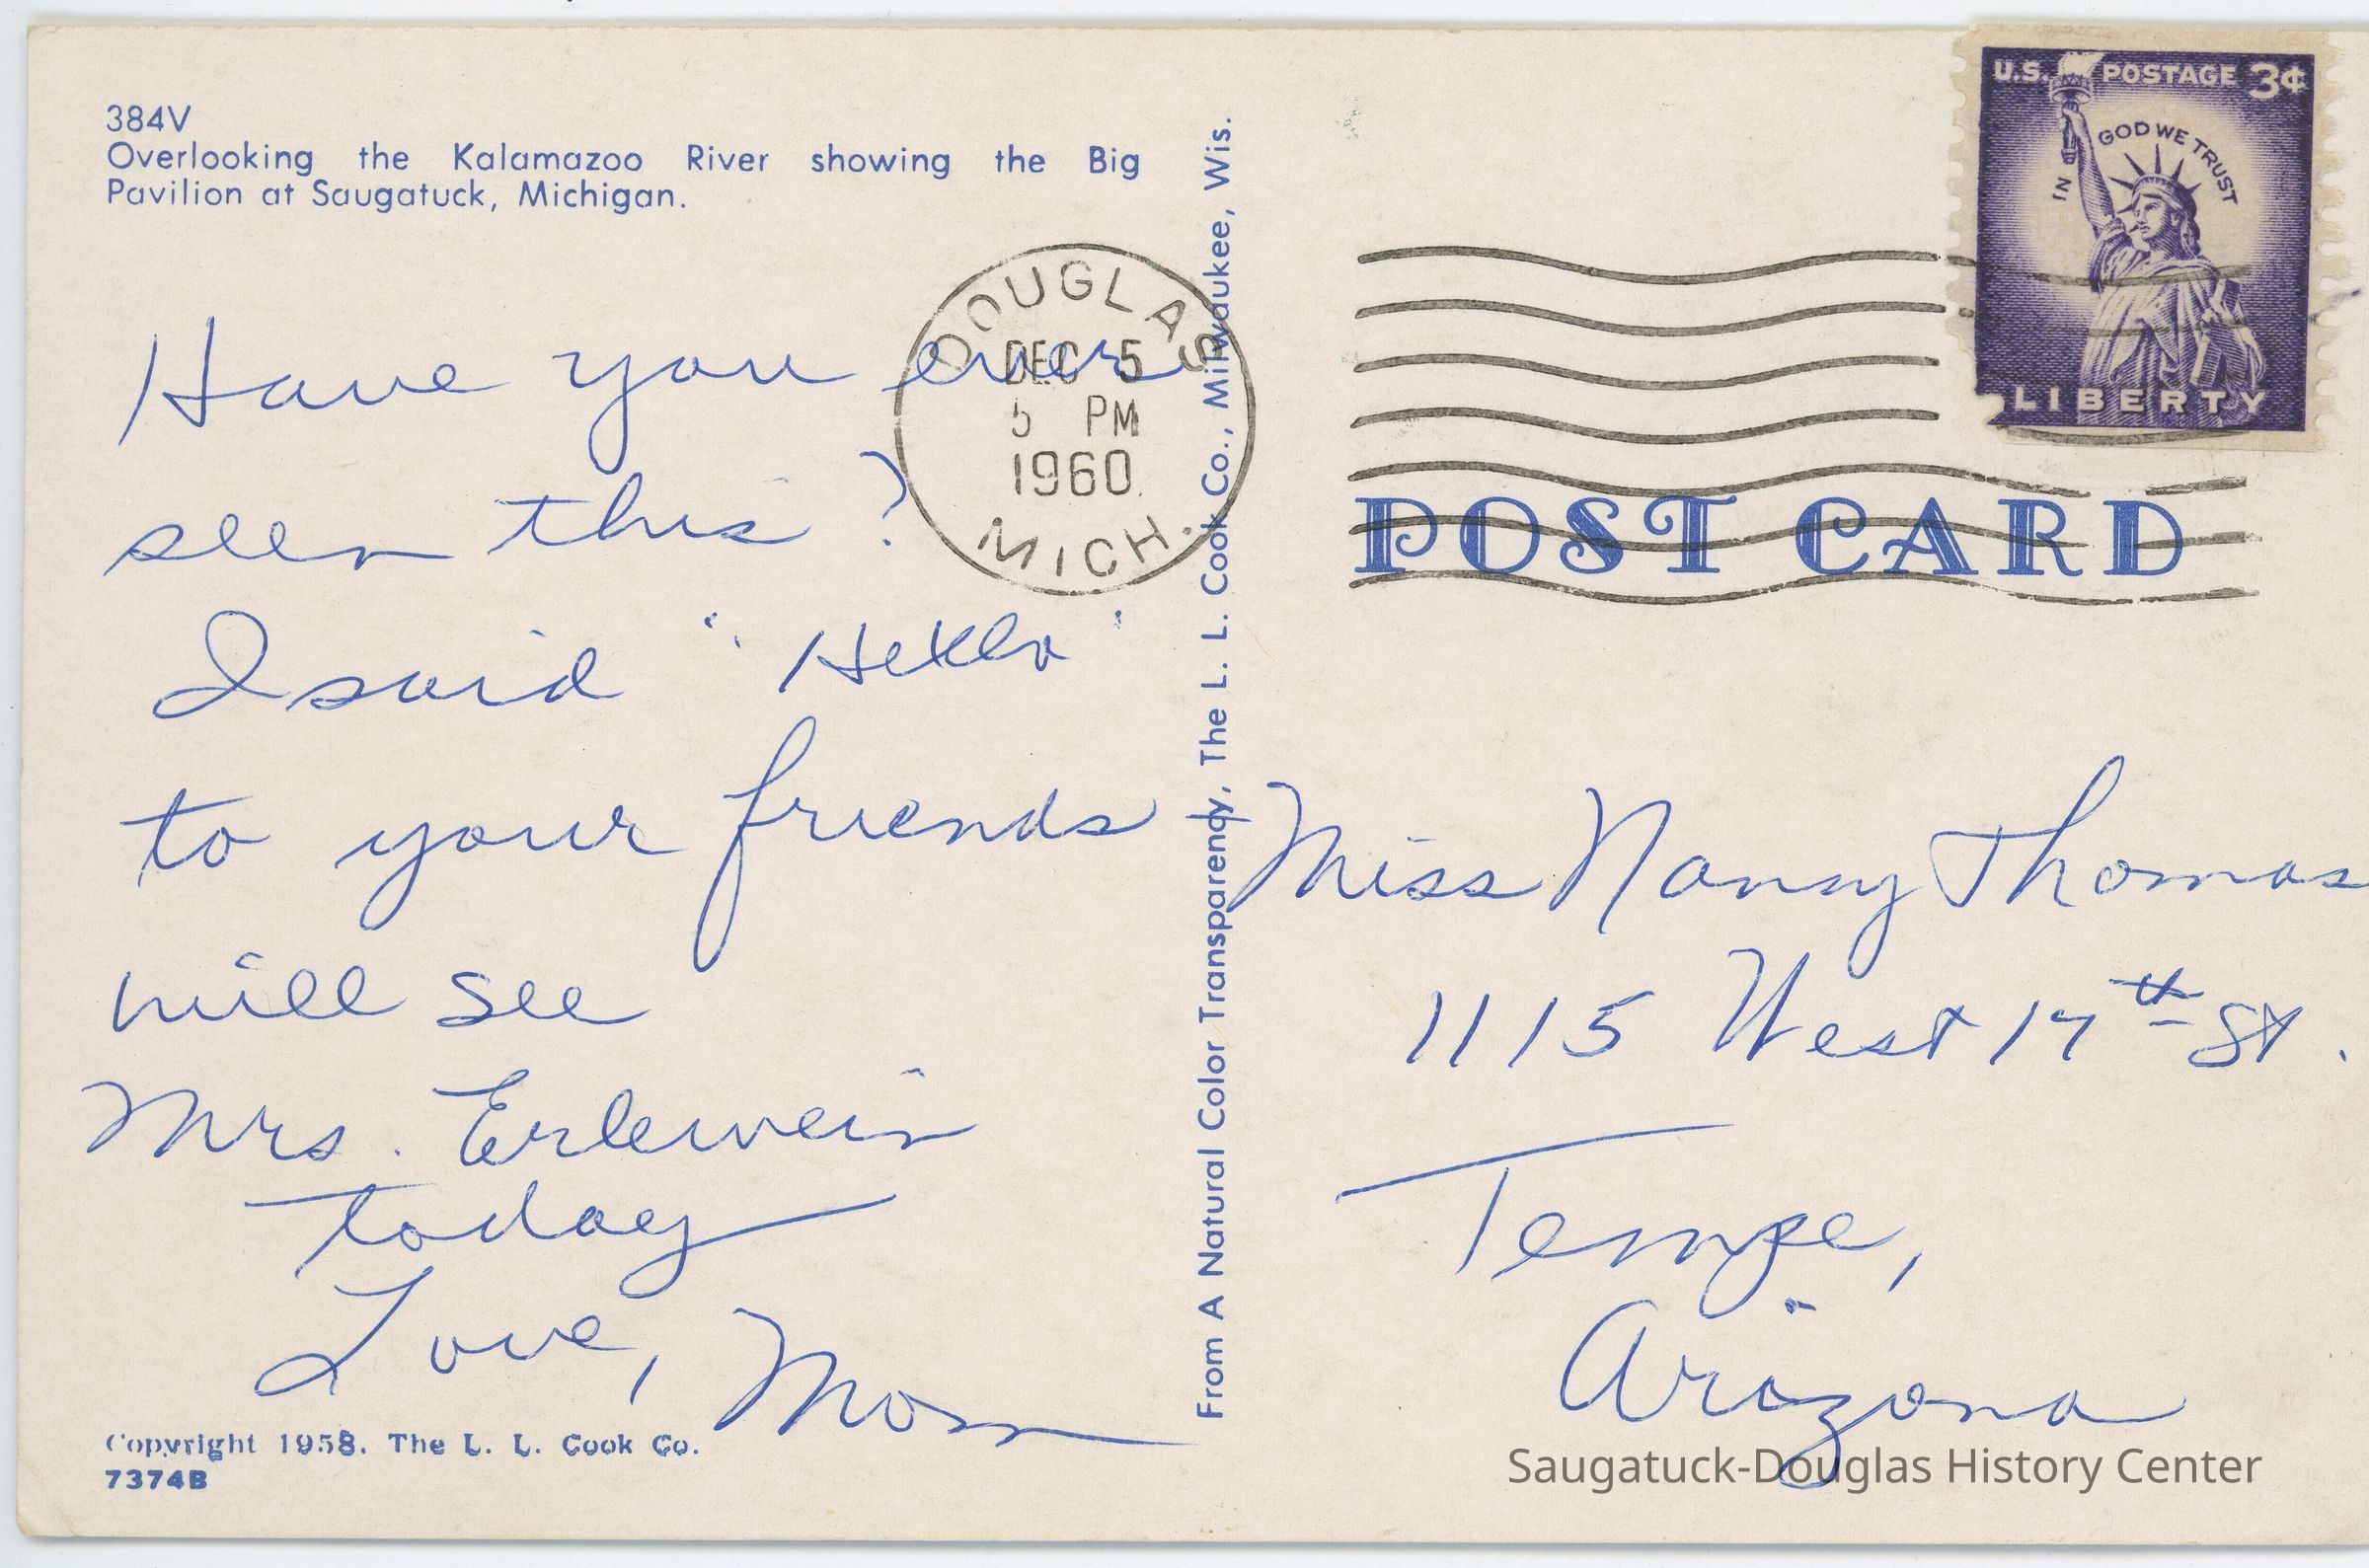 384V
Overlooking the Kalamazoo River showing the Big
Pavilion at Saugatuck, Michigan.
Have you ever
seen this?
I said "Hello"
to your friends
will see
Mrs. Erlewein
today
Love, Mom
Copyright 1958. The L. L. Cook Co.
7374B
DOUGLAS
DEC 5
5 PM
1960
MICH.
From A Natural Color Transparency, The L. L. Cook Co., Milwaukee, Wis.
U.S. POSTAGE 3¢
IN GOD WE TRUST
LIBERTY
POST CARD
Miss Nanny Thomas
1115 West 17th St.
Tempe,
Arizona
Saugatuck-Douglas History Center